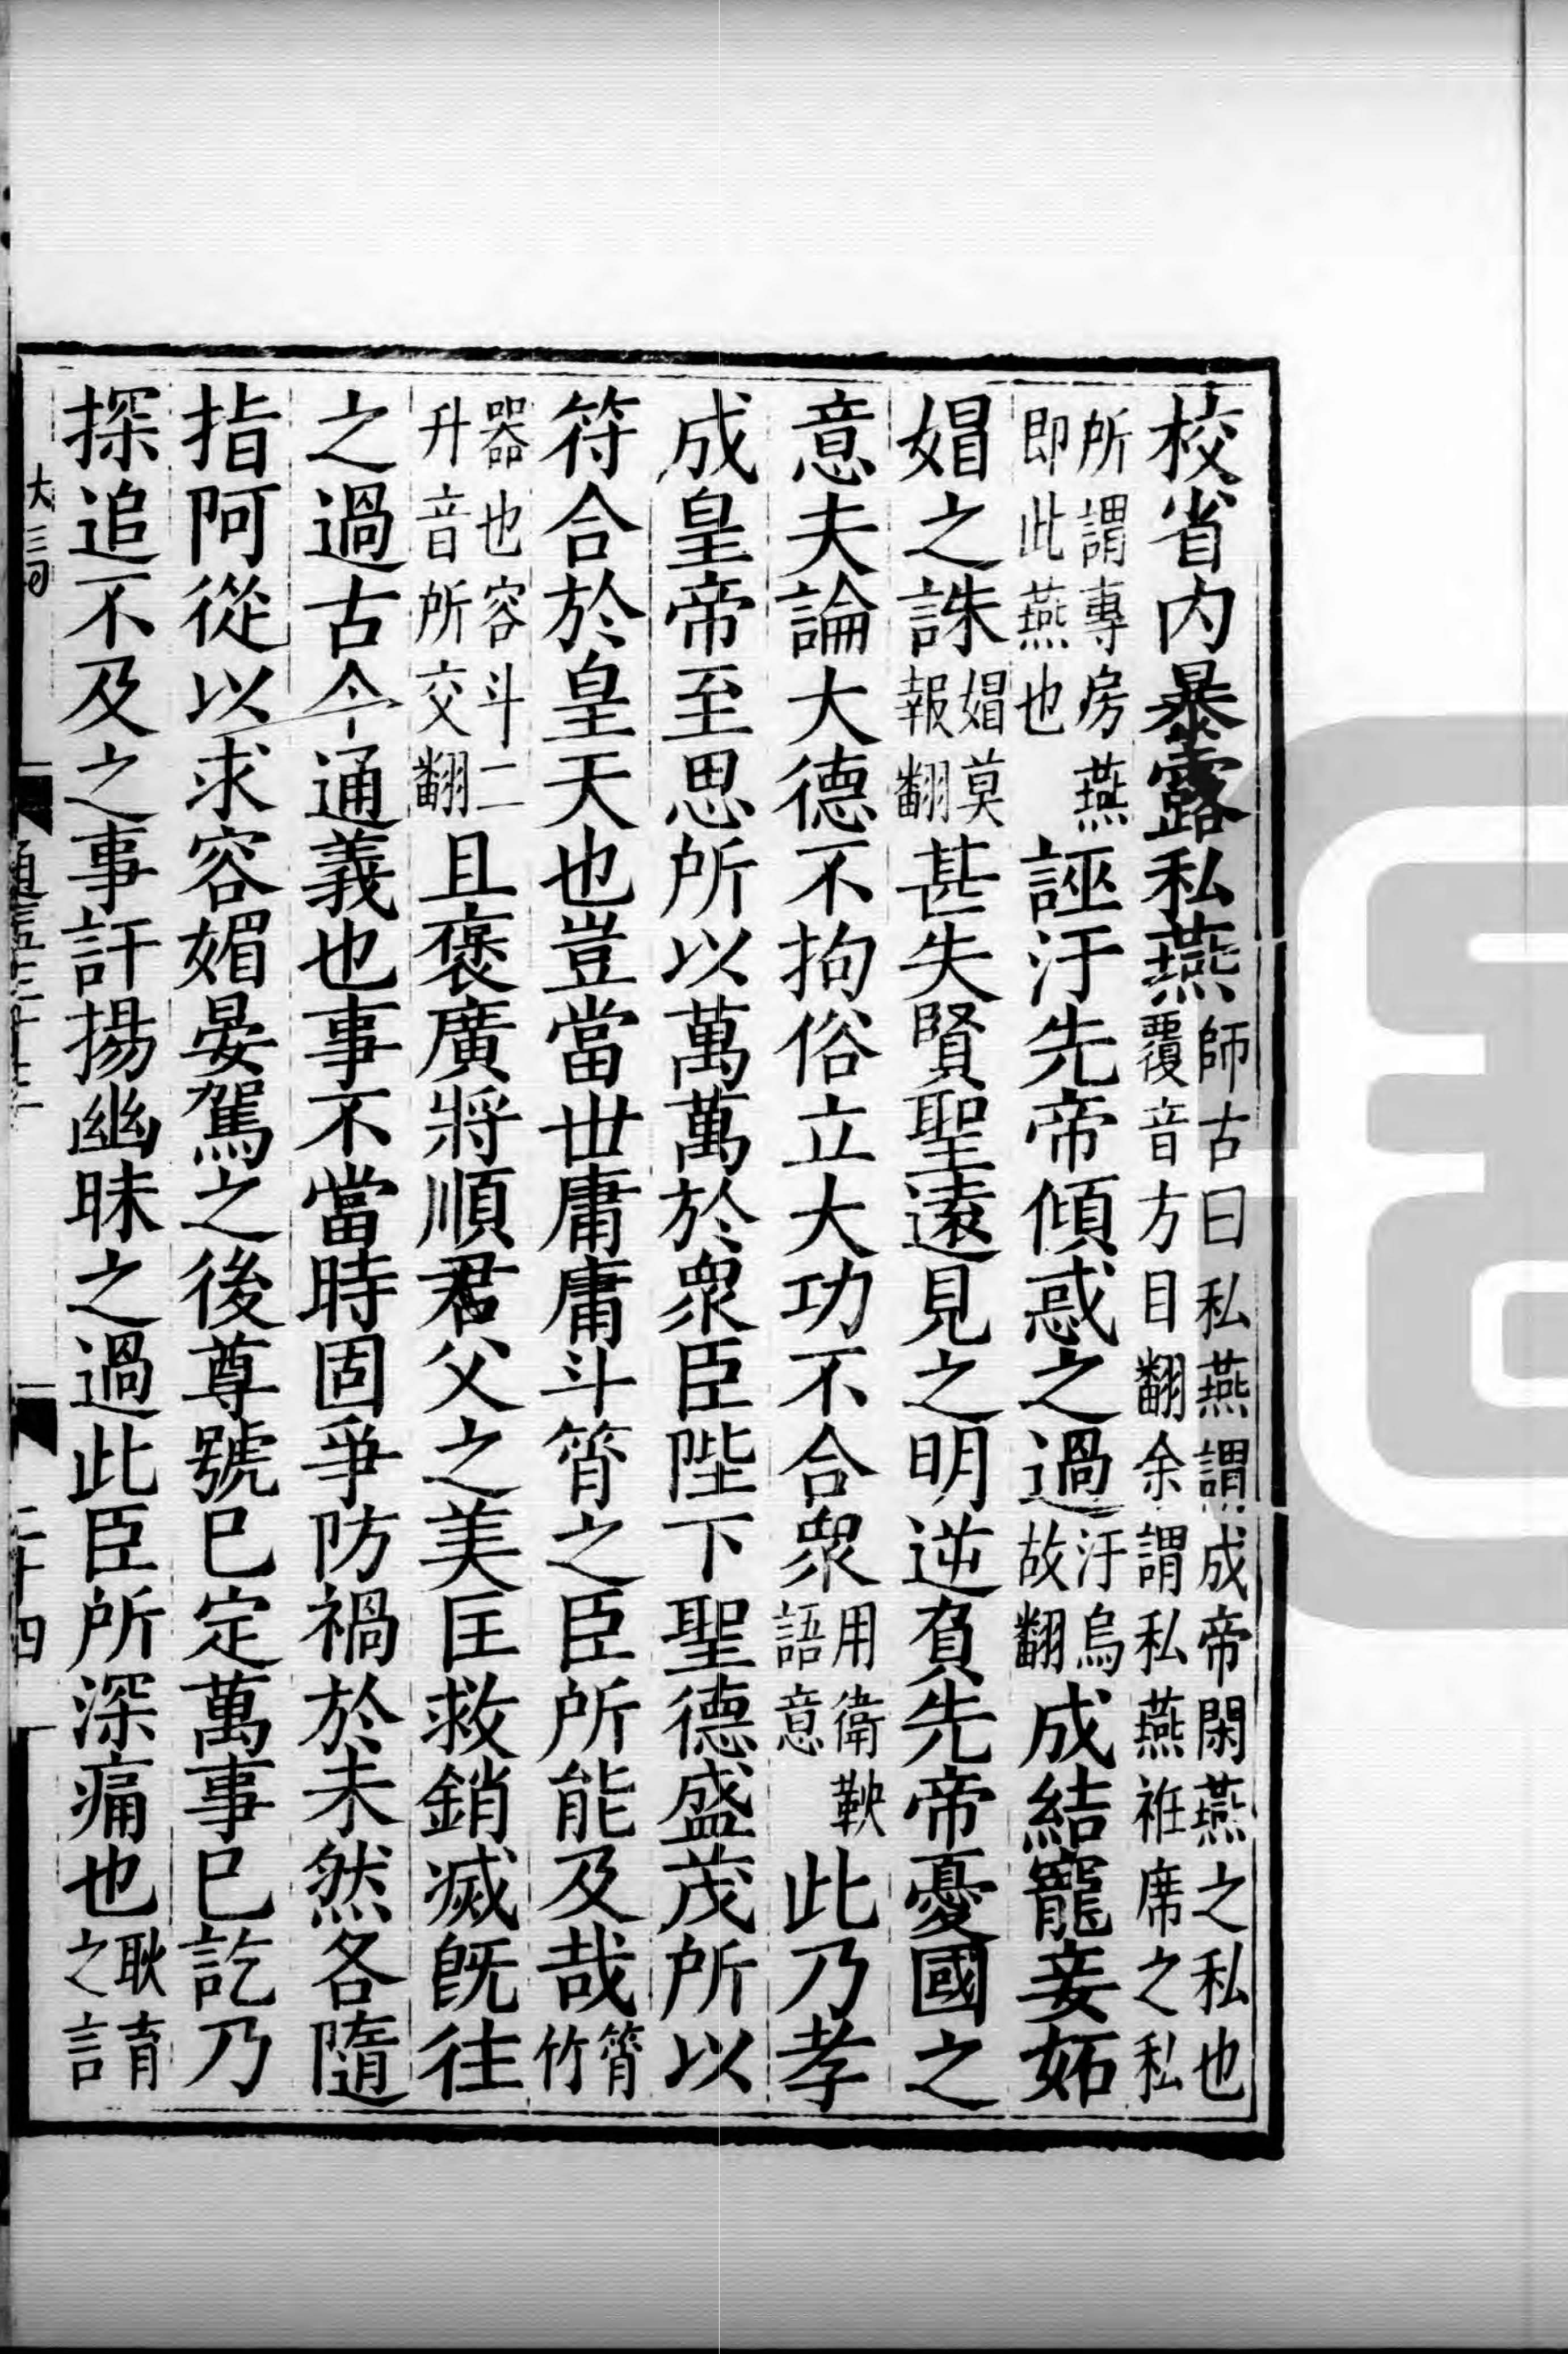 校省内暴露私燕師古曰私燕謂成帝閑燕之私也覆音方目翻余謂私燕袵席之私
所謂專房燕即此燕也誣汙先帝傾惑之過汙烏故翻成結寵妾妬
媢之誅媢莫報翻甚失賢聖遠見之明逆負先帝憂國之
意夫論大德不拘俗立大功不合衆用衛鞅語意此乃孝
成皇帝至思所以萬萬於衆臣陛下聖德盛茂所以
符合於皇天也豈當丗庸庸斗筲之臣所能及哉筲竹
器也容斗二升音所交翻且襃廣將順君父之美匡救銷滅旣往
之過古今通義也事不當時固爭防禍於未然各隨
指阿從以求容媚晏駕之後尊號已定萬事已訖乃
探追不及之事訐揚幽昧之過此臣所深痛也耿育之言